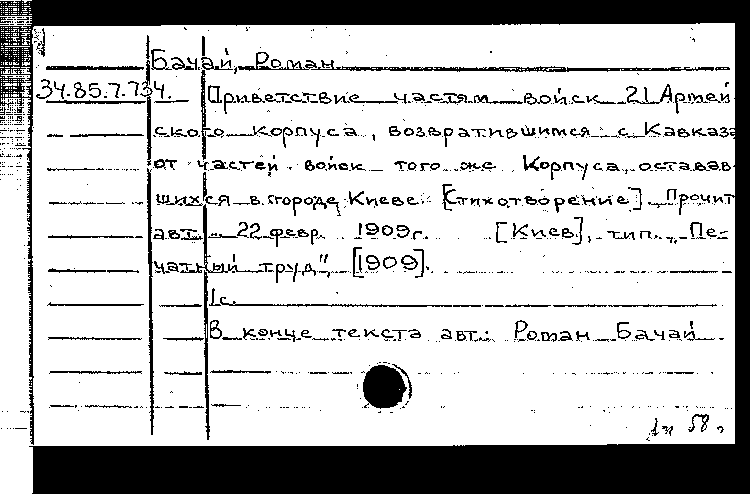 Бачай, Роман
34.85.7.734. Приветствие частям войск 21 Армей
ского корпуса, возвратившимся с Кавказа
от частей войск того же Корпуса, остававшихся
шихся в городе Киеве. [Стихотворение]. Прочит
авт. 22 февр. 1909 г. [Киев], тип. „Пе-
чатный труд", [1909].
1 с.
В конце текста авт.: Роман Бачай
58